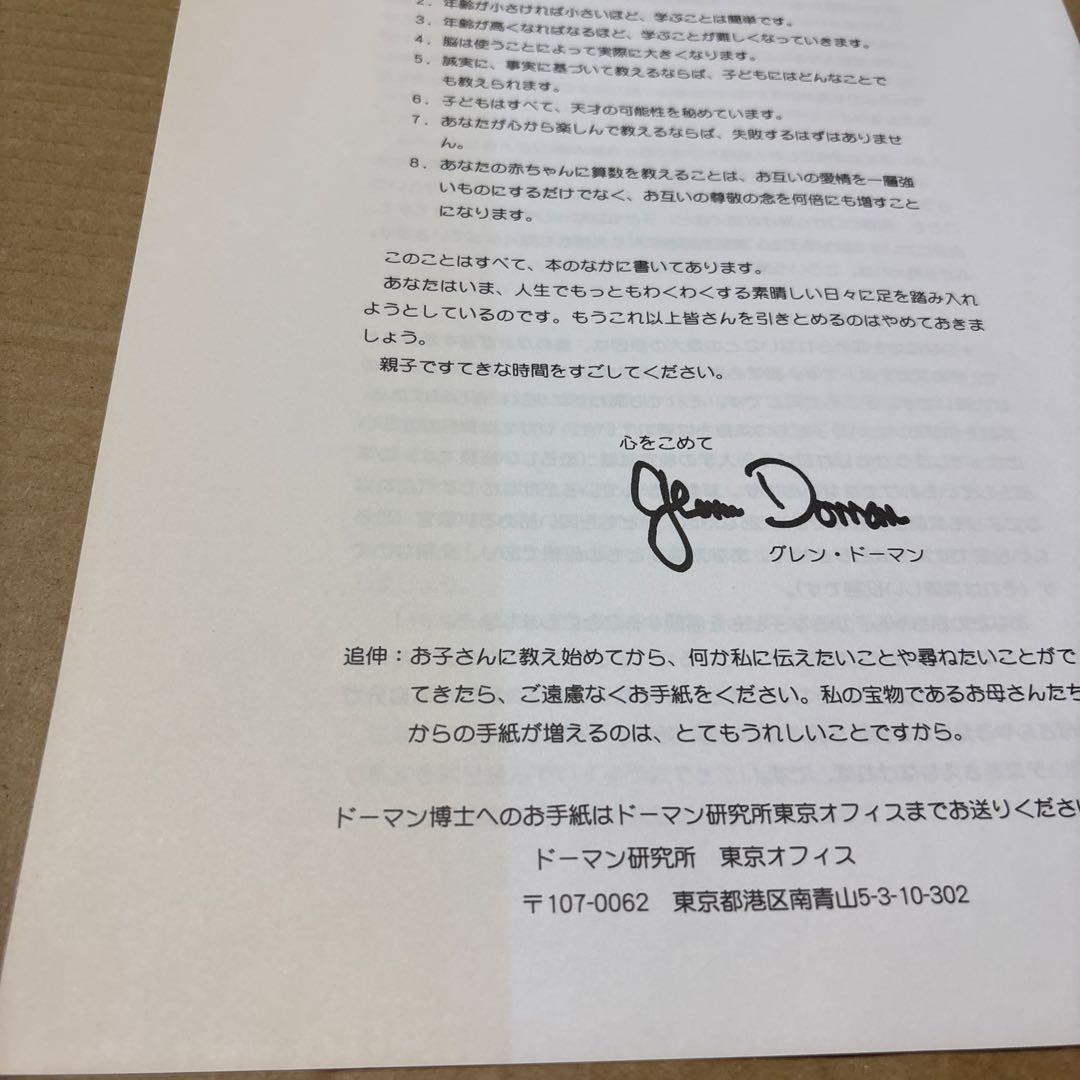 2．年齢が小さければ小さいほど、学ぶことは簡単です。
3．年齢が高くなればなるほど、学ぶことが難しくなっていきます。
4．脳は使うことによって実際に大きくなります。
5．誠実に、事実に基づいて教えるならば、子どもにはどんなことで
も教えられます。
6．子どもはすべて、天才の可能性を秘めています。
7．あなたが心から楽しんで教えるならば、失敗するはずはありませ
ん。
8．あなたの赤ちゃんに算数を教えることは、お互いの愛情を一層強
いものにするだけでなく、お互いの尊敬の念を何倍にも増すこと
になります。
このことはすべて、本のなかに書いてあります。
あなたはいま、人生でもっともわくわくする素晴しい日々に足を踏み入れ
ようとしているのです。もうこれ以上皆さんを引きとめるのはやめておきま
しょう。
親子ですてきな時間をすごしてください。
心をこめて
Glenn Doman
グレン・ドーマン
追伸：お子さんに教え始めてから、何か私に伝えたいことや尋ねたいことがで
てきたら、ご遠慮なくお手紙をください。私の宝物であるお母さんたち
からの手紙が増えるのは、とてもうれしいことですから。
ドーマン博士へのお手紙はドーマン研究所東京オフィスまでお送りくださ
ドーマン研究所　東京オフィス
〒107-0062　東京都港区南青山5-3-10-302